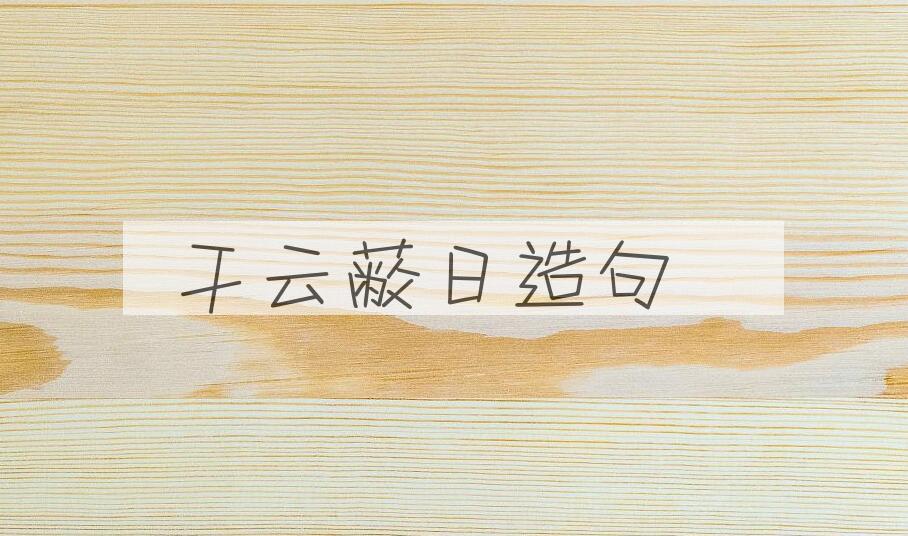 干云蔽日造句